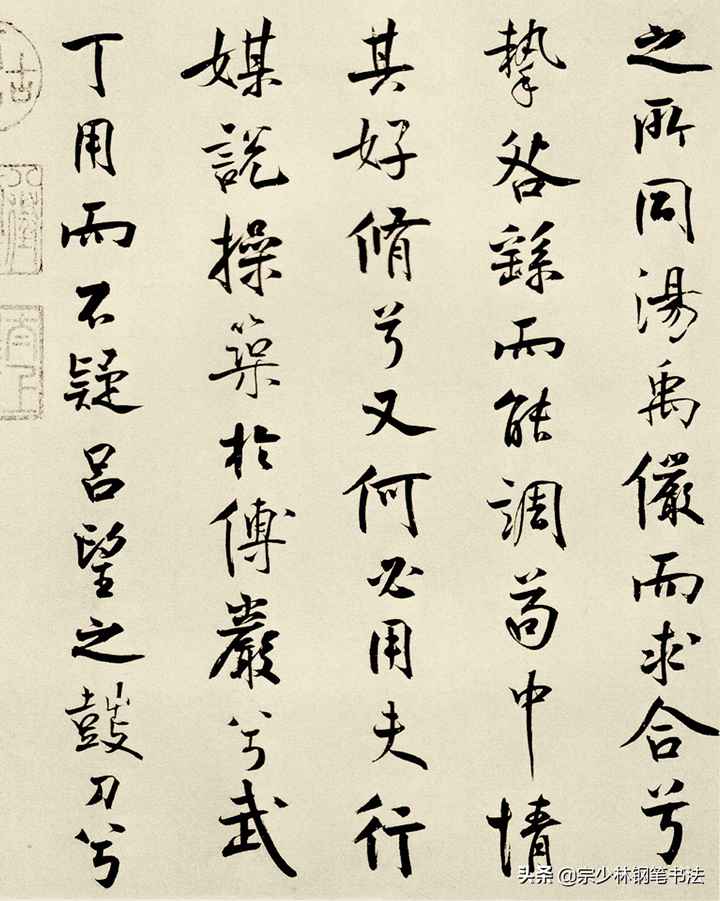 之所同湯禹儼而求合兮
摯咎繇而能調苟中情
其好脩兮又何必用夫行
媒說操築於傅巖兮武
丁用而不疑呂望之鼓刀兮
头条 @宗少林钢笔书法